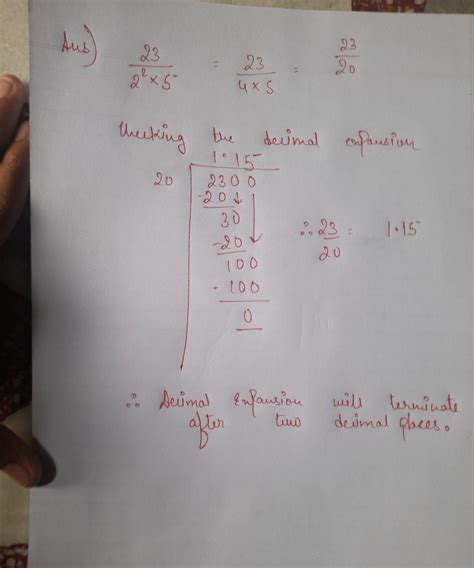 Ans) 23/2² × 5 = 23/4 × 5 = 23/20
Checking the decimal expansion
1.15
20 2300
-20↓
30
-20↓
∴ 23/20 = 1.15
100
- 100
0
∴ Decimal Expansion will terminate
after two decimal places.